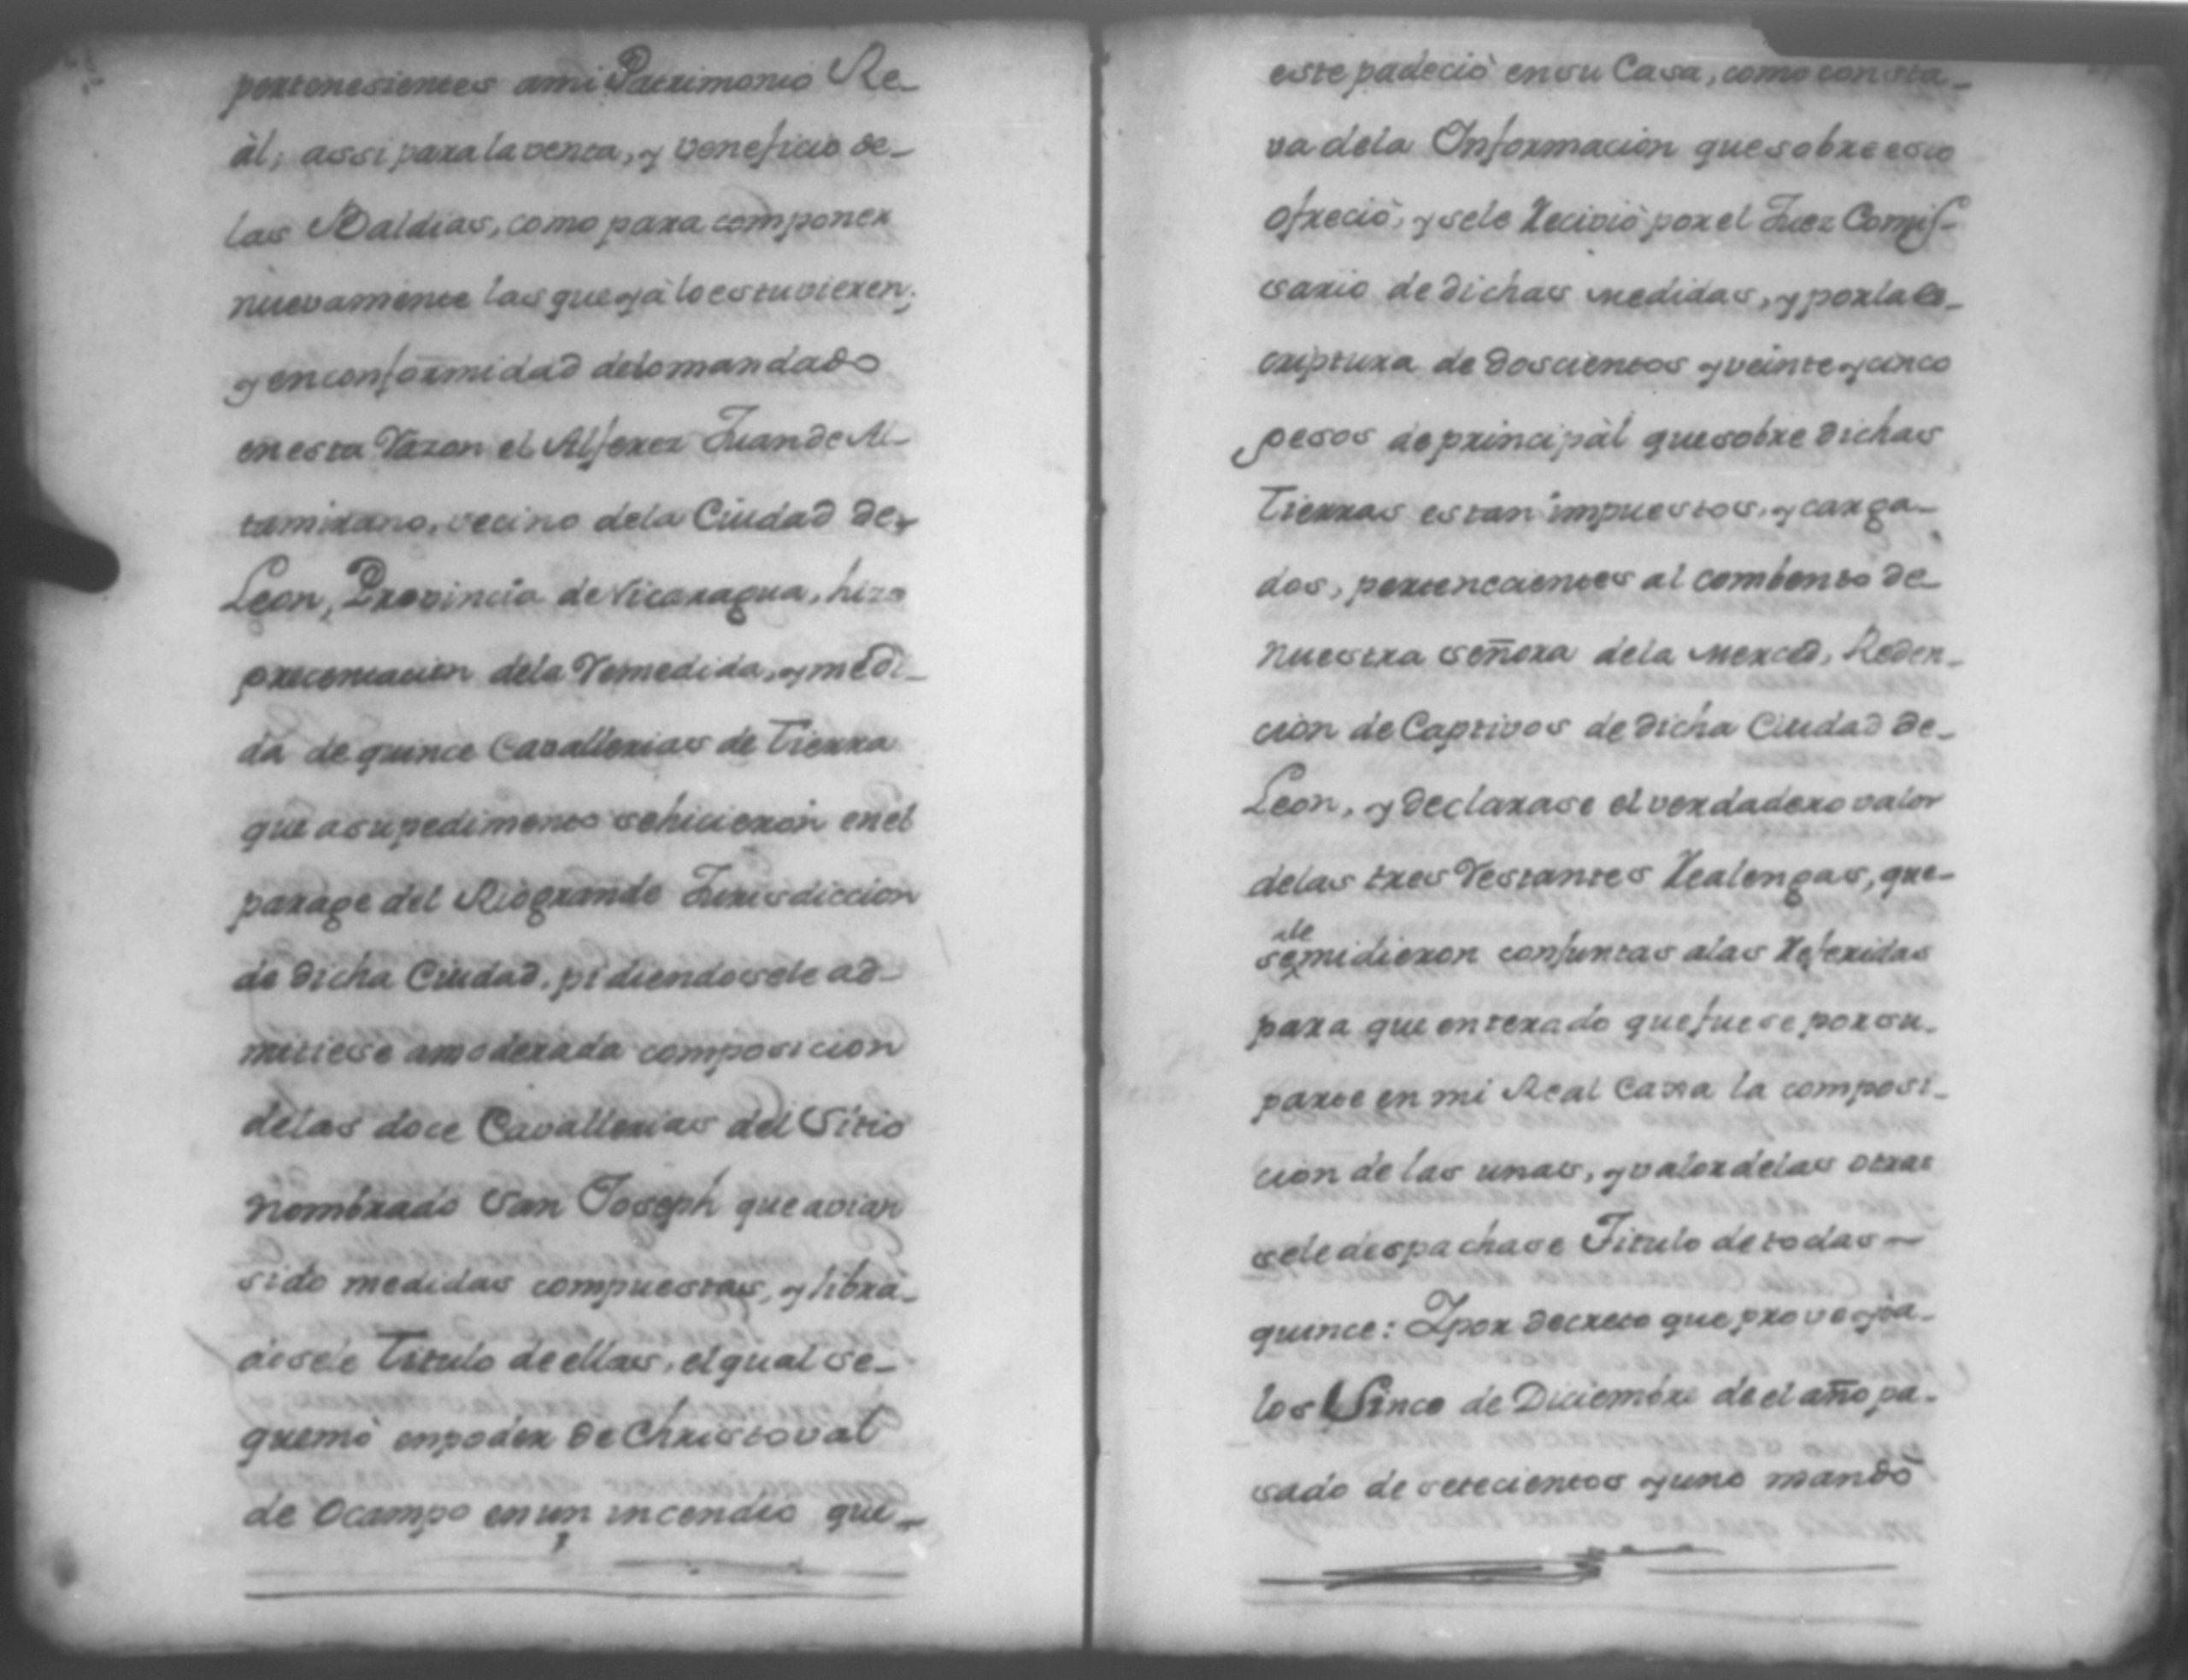 pertenesientes ami Patrimonio Re-
àl, assi para la venta, y veneficio de-
las Baldias, como para componer
nuevamente las que yà lo estuvieren;
y en conformidad delo mandado
en esta Razon el Alferez Juan de Al-
tamirano, vecino dela Ciudad de
Leon, Provincia de Nicaragua, hizo
precentacion dela Remedida, y medi-
da de quince Cavallerias de Tierra
que a su pedimento se hicieron en el
parage del Rio grande Jurisdiccion
de dicha Ciudad, pidiendo se le ad-
mitiese a moderada composicion
delas doce Cavallerias del Sitio
nombrado San Joseph que avian
sido medidas compuestas, y libra-
dosele Titulo de ellas, el qual se-
quemò en poder de Christoval
de Ocampo en un incendio que
este padeciò en su Casa, como consta-
va dela Informacion que sobre esto
ofreciò, y sele Recivió por el Juez Comis-
sario de dichas medidas, y por la es-
criptura de doscientos y veinte y cinco
pesos de principàl que sobre dichas
Tierras estan impuestos, y carga-
dos, pertenecientes al combento de
Nuestra señora dela Merced, Reden-
cion de Captivos de dicha Ciudad de-
Leon, y declarase el verdadero valor
delas tres Restantes Realengas, que-
se le midieron conjuntas a las Referidas
para que enterado que fuese por su
parte en mi Real Caxa la composi-
cion de las unas, y valor delas otras
sele despachase Titulo de todas
quince: Y por decreto que proveyò a
los Sinco de Diciembre de el año pa-
sado de setecientos y uno mandò